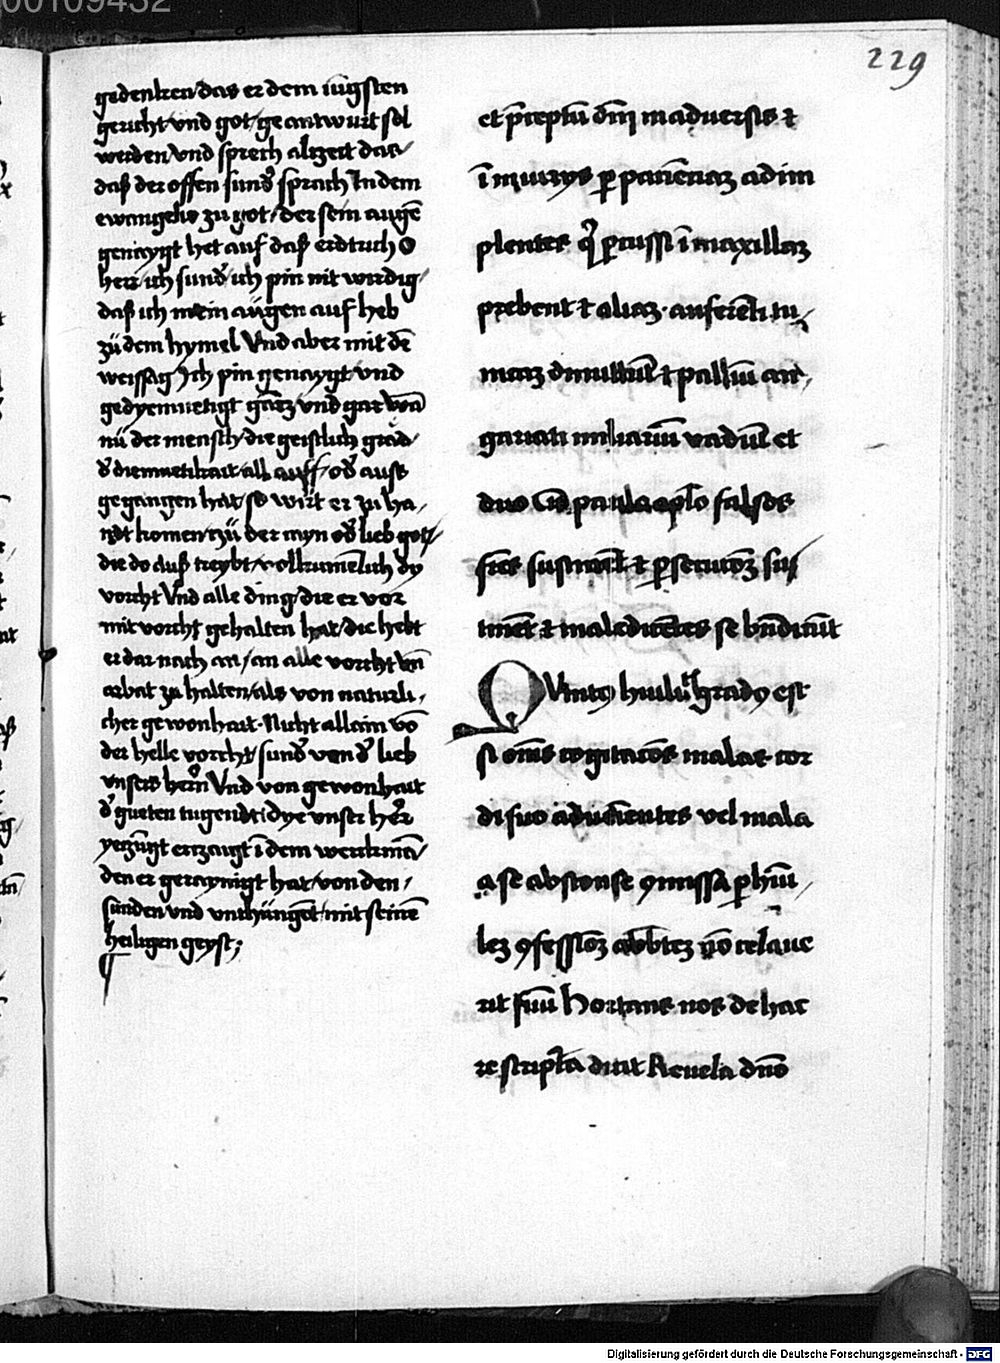 00109432
229
gedencken das er dem iüngsten
gericht vnd got geantwurt sol
werden vnd sprech alczeit das
daß der offen sunđ sprach In dem
ewangelio zu got der sein augē
genaygt het auf daß erdtrich O
herr ich sunđ ich pin nit wirdig
daß ich mein augen auf heb
zü dem hymel Vnd aber mit dē
weissag Ich pin genaygt vnd
gedyemuetigt gātz vnd gar Wā
nü der mensch die geistlich grad
đ diemuetikait all auff ođ auss
gegangen hat so wirt er zu ha
ndt komen tzü der myn ođ lieb got
die do auß treybt volkumēlich dy
vorcht Vnd alle ding die er vor
mit vorcht gehalten hat die hebt
er dar nach an an alle vorcht vn̄
arbat zu halten als von naturli
cher gewonhait Nicht allain vō
der helle vorcht sunđ von đ lieb
vnsers hern̄ Vnd von gewonhait
đ gueten tugendt dye vnser her
yeczūgt erczaigt ī dem werckmā
den er geraynigt hat von den
sünden vnd vnthüngēt mit seinē
heiligen geyst;
et p̄ceptū dn̄i in aduersis ⁊
ī iniurys ꝑ pacienciaꝫ adim
plentes q̓ ꝑcussi ī maxillaꝫ
prebent ⁊ aliaꝫ auferēti tu
nicaꝫ dimittūt ⁊ palliū an
gariati miliariū vadūt et
duo Cū paulo apl̄o falsos
fr̄es sustinēt ⁊ ꝑsecucōꝫ sus
tinēt ⁊ maledicētes se bn̄dicūt
Quintꝰ humilitatis gradꝰ est
si om̄s cogitacōes malas cor
di suo aduenientes vel mala
a se absconse ꝯmissa ꝑ humi
leꝫ ꝯfessioꝫ abbteꝫ nō celaue
rit suū Hortans nos de hac
re scriptā dicit Reuela dn̄o
Digitalisierung gefördert durch die Deutsche Forschungsgemeinschaft - DFG